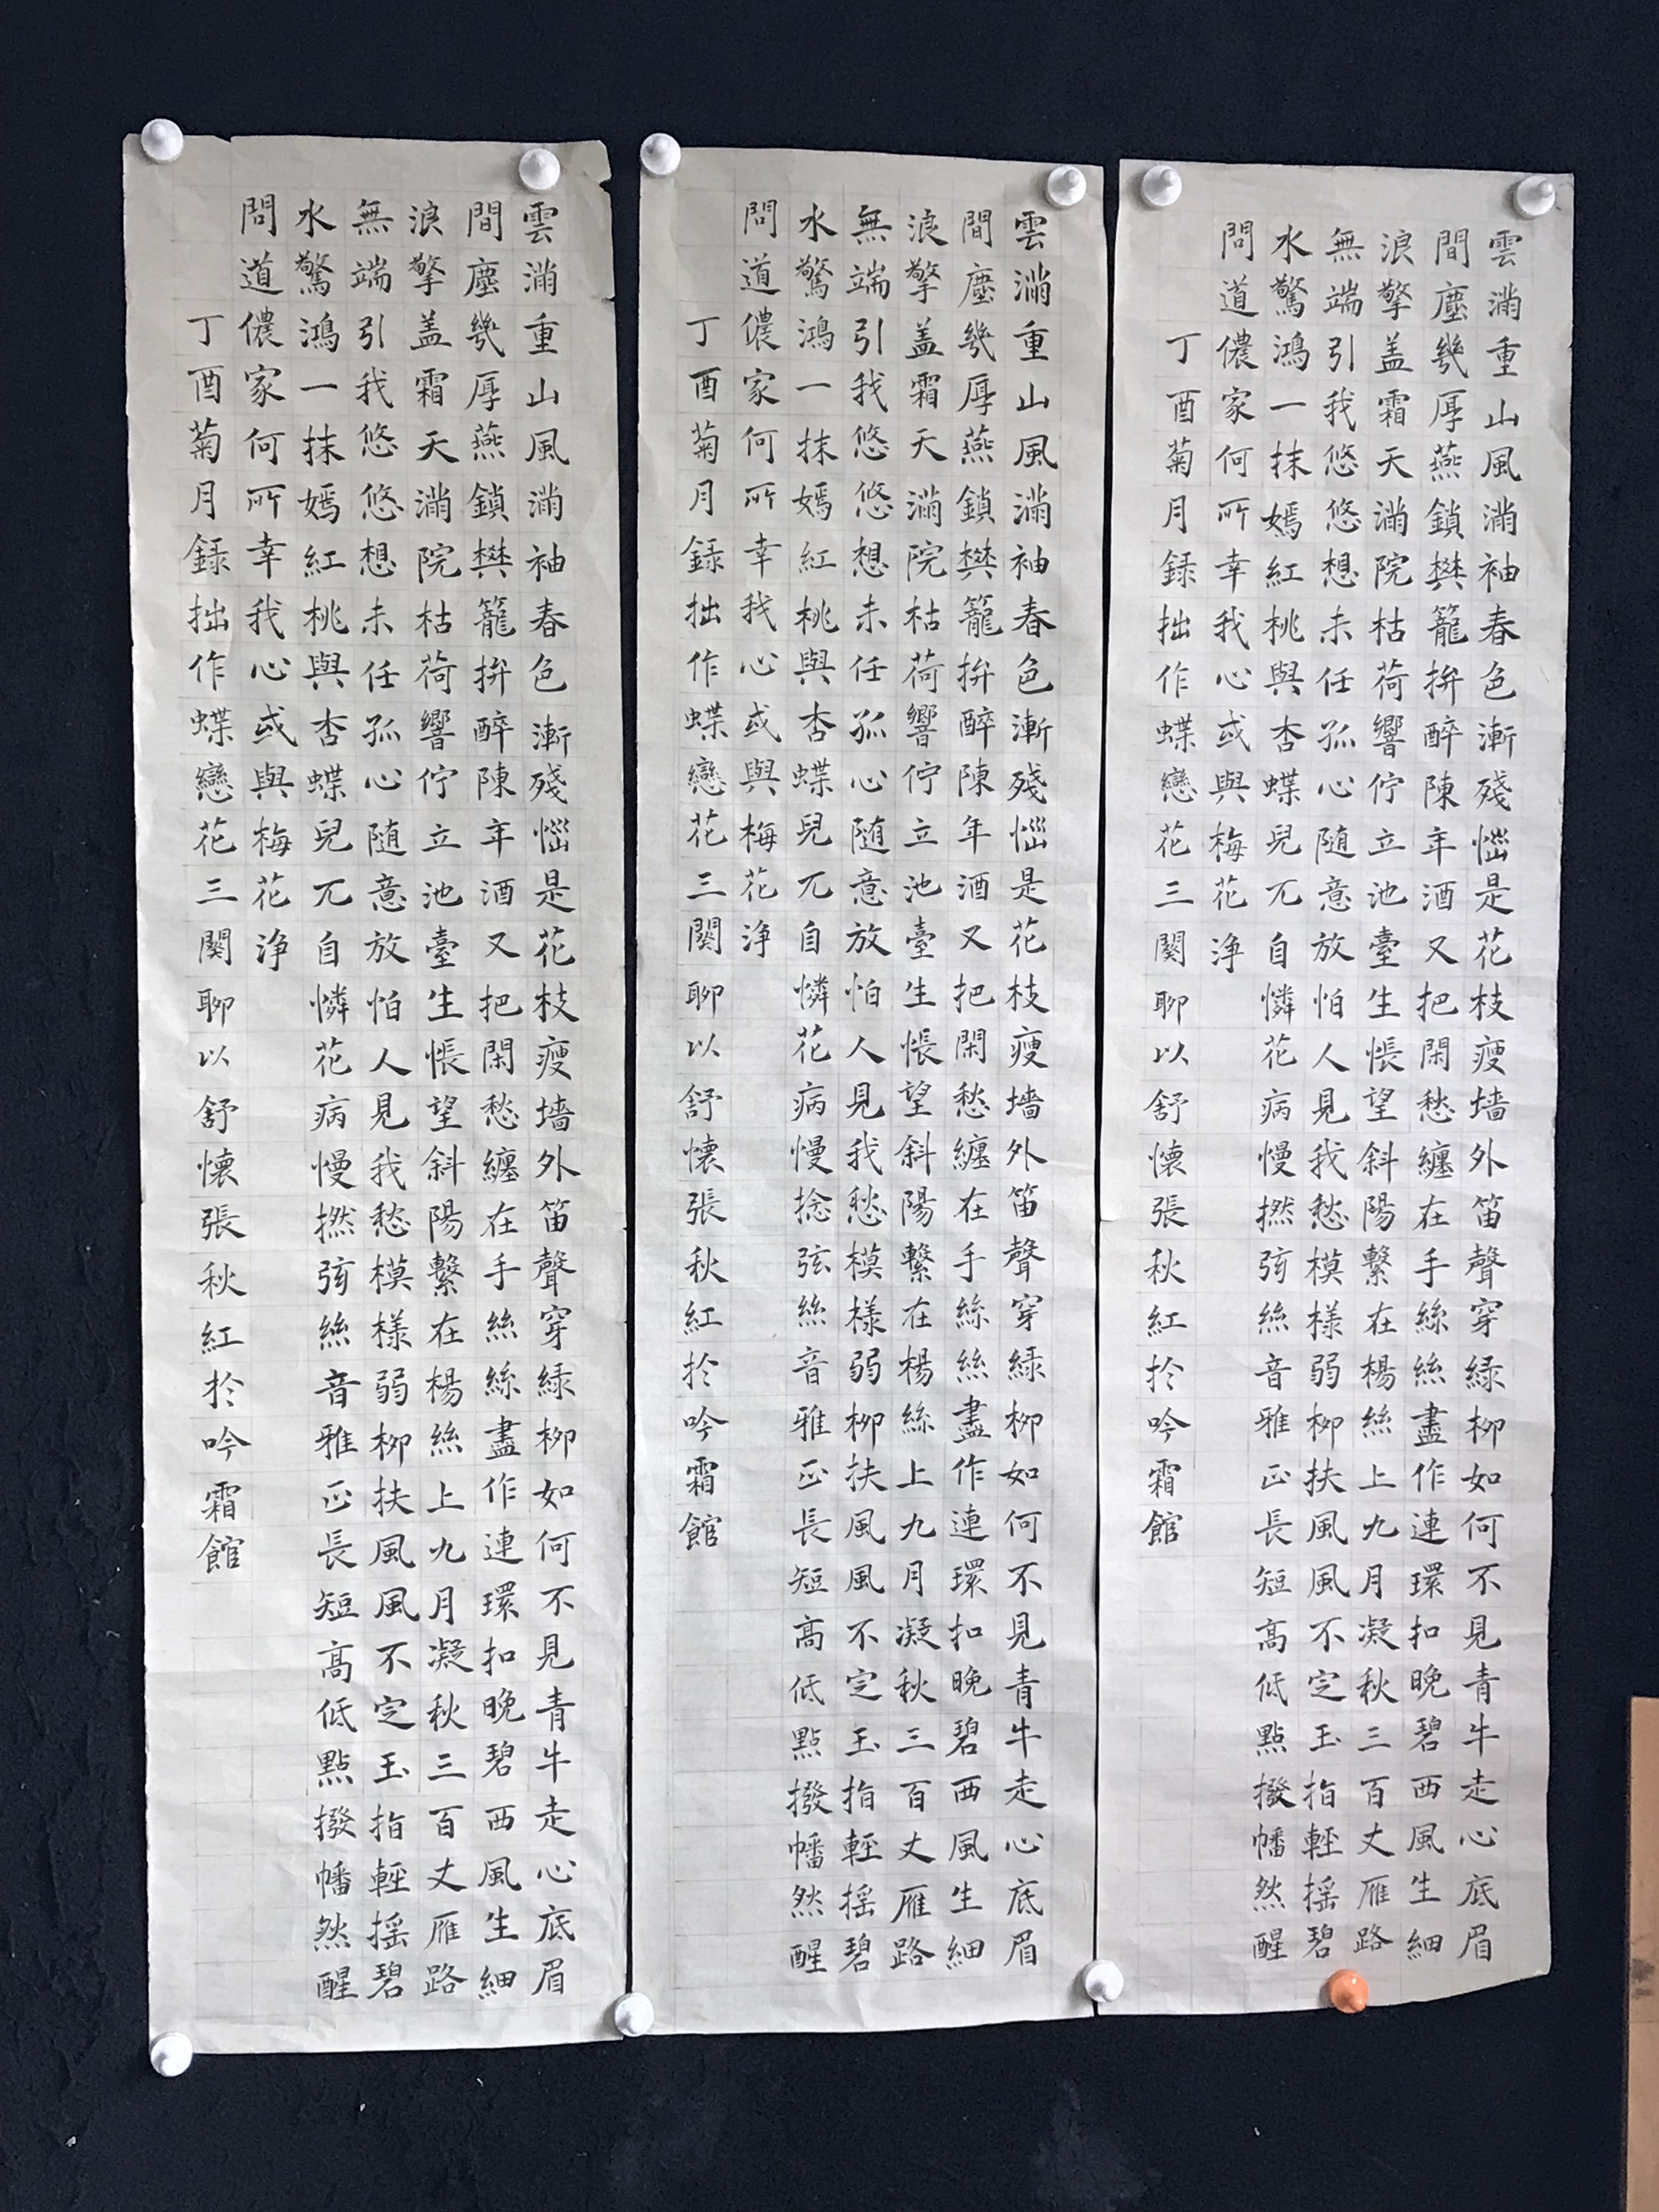 雲滿重山風滿袖春色漸殘惱是花枝瘦墻外笛聲穿綠柳如何不見青牛走心底眉
間塵幾厚燕鎖樊籠拚醉陳年酒又把閑愁纏在手絲絲盡作連環扣晚碧西風生細
浪擎盖霜天滿院枯荷響佇立池臺生悵望斜陽繫在楊絲上九月凝秋三百丈雁路
無端引我悠悠想未任孤心隨意放怕人見我愁模樣弱柳扶風風不定玉指輕摇碧
水驚鴻一抹嫣紅桃與杏蝶兒兀自憐花病慢撚弦絲音雅正長短高低點撥幡然醒
問道儂家何所幸我心或與梅花淨
丁酉菊月録拙作蝶戀花三闋聊以舒懷張秋紅於吟霜館
雲滿重山風滿袖春色漸殘惱是花枝瘦墻外笛聲穿綠柳如何不見青牛走心底眉
間塵幾厚燕鎖樊籠拚醉陳年酒又把閑愁纏在手絲絲盡作連環扣晚碧西風生細
浪擎盖霜天滿院枯荷響佇立池臺生悵望斜陽繫在楊絲上九月凝秋三百丈雁路
無端引我悠悠想未任孤心隨意放怕人見我愁模樣弱柳扶風風不定玉指輕摇碧
水驚鴻一抹嫣紅桃與杏蝶兒兀自憐花病慢捻弦絲音雅正長短高低點撥幡然醒
問道儂家何所幸我心或與梅花淨
丁酉菊月録拙作蝶戀花三闋聊以舒懷張秋紅於吟霜館
雲滿重山風滿袖春色漸殘惱是花枝瘦墻外笛聲穿綠柳如何不見青牛走心底眉
間塵幾厚燕鎖樊籠拚醉陳年酒又把閑愁纏在手絲絲盡作連環扣晚碧西風生細
浪擎盖霜天滿院枯荷響佇立池臺生悵望斜陽繫在楊絲上九月凝秋三百丈雁路
無端引我悠悠想未任孤心隨意放怕人見我愁模樣弱柳扶風風不定玉指輕摇碧
水驚鴻一抹嫣紅桃與杏蝶兒兀自憐花病慢撚弦絲音雅正長短高低點撥幡然醒
問道儂家何所幸我心或與梅花淨
丁酉菊月録拙作蝶戀花三闋聊以舒懷張秋紅於吟霜館